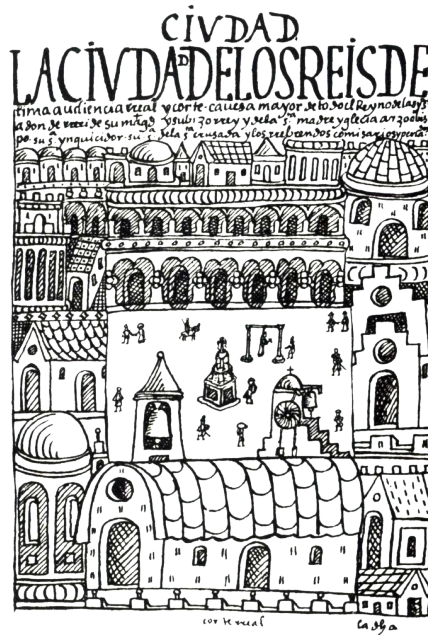 CIVDAD
LA CIVDAD DE LOS REIS DE
lima audiencia rreal y corte. cauesa mayor de todo el Reyno de las
a don de rrecide su mag.d y su bizorrey y de la s.ta madre yglecia arzobis
po. su s.a ynquicidor. su s.a de la s.ta crusada y los rrebrendos comisarios y
corte rreal